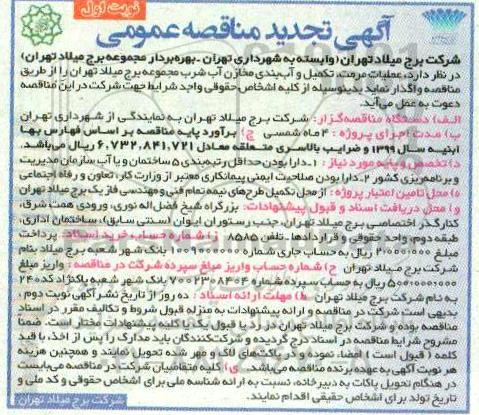 نوبت اول
آگهی تجدید مناقصه عمومی
شرکت برج میلاد تهران (وابسته به شهرداری تهران - بهره‌بردار مجموعه برج میلاد تهران)
در نظر دارد، عملیات مرمت، تکمیل و آب‌بندی مخازن آب شرب مجموعه برج میلاد تهران را از طریق
مناقصه واگذار نماید بدینوسیله از کلیه اشخاص حقوقی واجد شرایط جهت شرکت در این مناقصه
دعوت به عمل می‌آید.
الف) دستگاه مناقصه‌گزار: شرکت برج میلاد تهران به نمایندگی از شهرداری تهران
ب) مدت اجرای پروژه: ۳ ماه شمسی ج) برآورد پایه مناقصه بر اساس فهارس بها
ابنیه سال ۱۳۹۹ و ضرایب بالاسری متعلقه معادل ۶,۷۳۲,۸۴۱,۷۲۱ ریال می‌باشد.
د) تخصص و پایه مورد نیاز: ۱- دارا بودن حداقل رتبه‌بندی ۵ ساختمان و یا آب سازمان مدیریت
و برنامه‌ریزی کشور ۲- دارا بودن صلاحیت ایمنی پیمانکاری معتبر از وزارت کار، تعاون و رفاه اجتماعی
ه) محل تامین اعتبار پروژه: از محل تکمیل طرح‌های نیمه تمام فنی و مهندسی فاز یک برج میلاد تهران
و) محل دریافت اسناد و قبول پیشنهادات: بزرگراه شیخ فضل‌اله نوری، ورودی همت شرق،
کنارگذر اختصاصی برج میلاد تهران، جنب رستوران ایوان (سنتی سابق)، ساختمان اداری،
طبقه دوم، واحد حقوقی و قراردادها - تلفن ۸۵۸۵ ز) شماره حساب خرید اسناد: پرداخت
مبلغ ۲٫۰۰۰٫۰۰۰ ریال به حساب جاری شماره ۱۰۰۷۰۰۰۰ بانک شهر شعبه برج میلاد بنام
شرکت برج میلاد تهران ح) شماره حساب واریز مبلغ سپرده شرکت در مناقصه: واریز مبلغ
۵۰۰٫۰۰۰٫۰۰۰ ریال به حساب سپرده شماره ۷۰۰۲۳۰۸۴۰۴ بانک شهر شعبه پاکنژاد کد ۲۴۰
به نام شرکت برج میلاد تهران ط) مهلت ارائه اسناد: ده روز از تاریخ نشر آگهی نوبت دوم.
بدیهی است شرکت در مناقصه و ارائه پیشنهادات به منزله قبول شروط و تکالیف مقرر در اسناد
مناقصه بوده و شرکت برج میلاد تهران در رد یا قبول یک یا کلیه پیشنهادات مختار است. ضمنا
مشروح شرایط مناقصه در اسناد درج گردیده و شرکت‌کنندگان باید مدارک را پس از اخذ، با قید
کلمه (قبول است) امضاء نموده و در پاکت‌های لاک و مهر شده تحویل نمایند و همچنین هزینه
هر نوبت آگهی به عهده برنده مناقصه می‌باشد. ی) کلیه متقاضیان شرکت در مناقصه می‌بایست
در هنگام تحویل پاکات به دبیرخانه، نسبت به ارائه شناسه ملی برای اشخاص حقوقی و کد ملی و
تاریخ تولد برای اشخاص حقیقی اقدام نمایند.
شرکت برج میلاد تهران